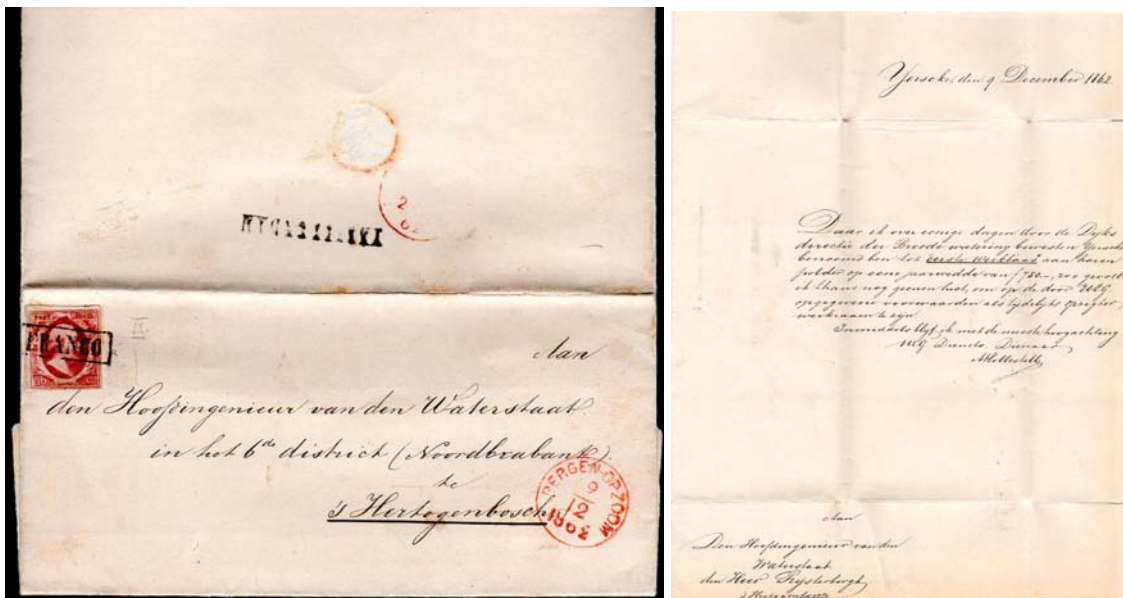 FRANCO
IX.
Aan
den Hoofdingenieur van den Waterstaat
in het 6de district (Noordbrabant)
te
's Hertogenbosch
BERGEN-OP-ZOOM
9
12
1862
2
62
Yerseke, den 9 December 1862.
Daar ik over eenige dagen door de Dijks
directie der Breede watering bewesten Yerseke
benoemd ben tot eerste Werkbaas aan haren
polder op eene jaarwedde van ƒ750.-, zoo gevoel
ik thans nog geenen lust, om op de door UEG
opgegevene voorwaarden als tijdelijk opzigter
werkzaam te zijn
Inmiddels blijf ik met de meeste hoogachting
UEG Dienstw. Dienaar
Aan
Den Hoofdingenieur van den
Waterstaat
den Heer